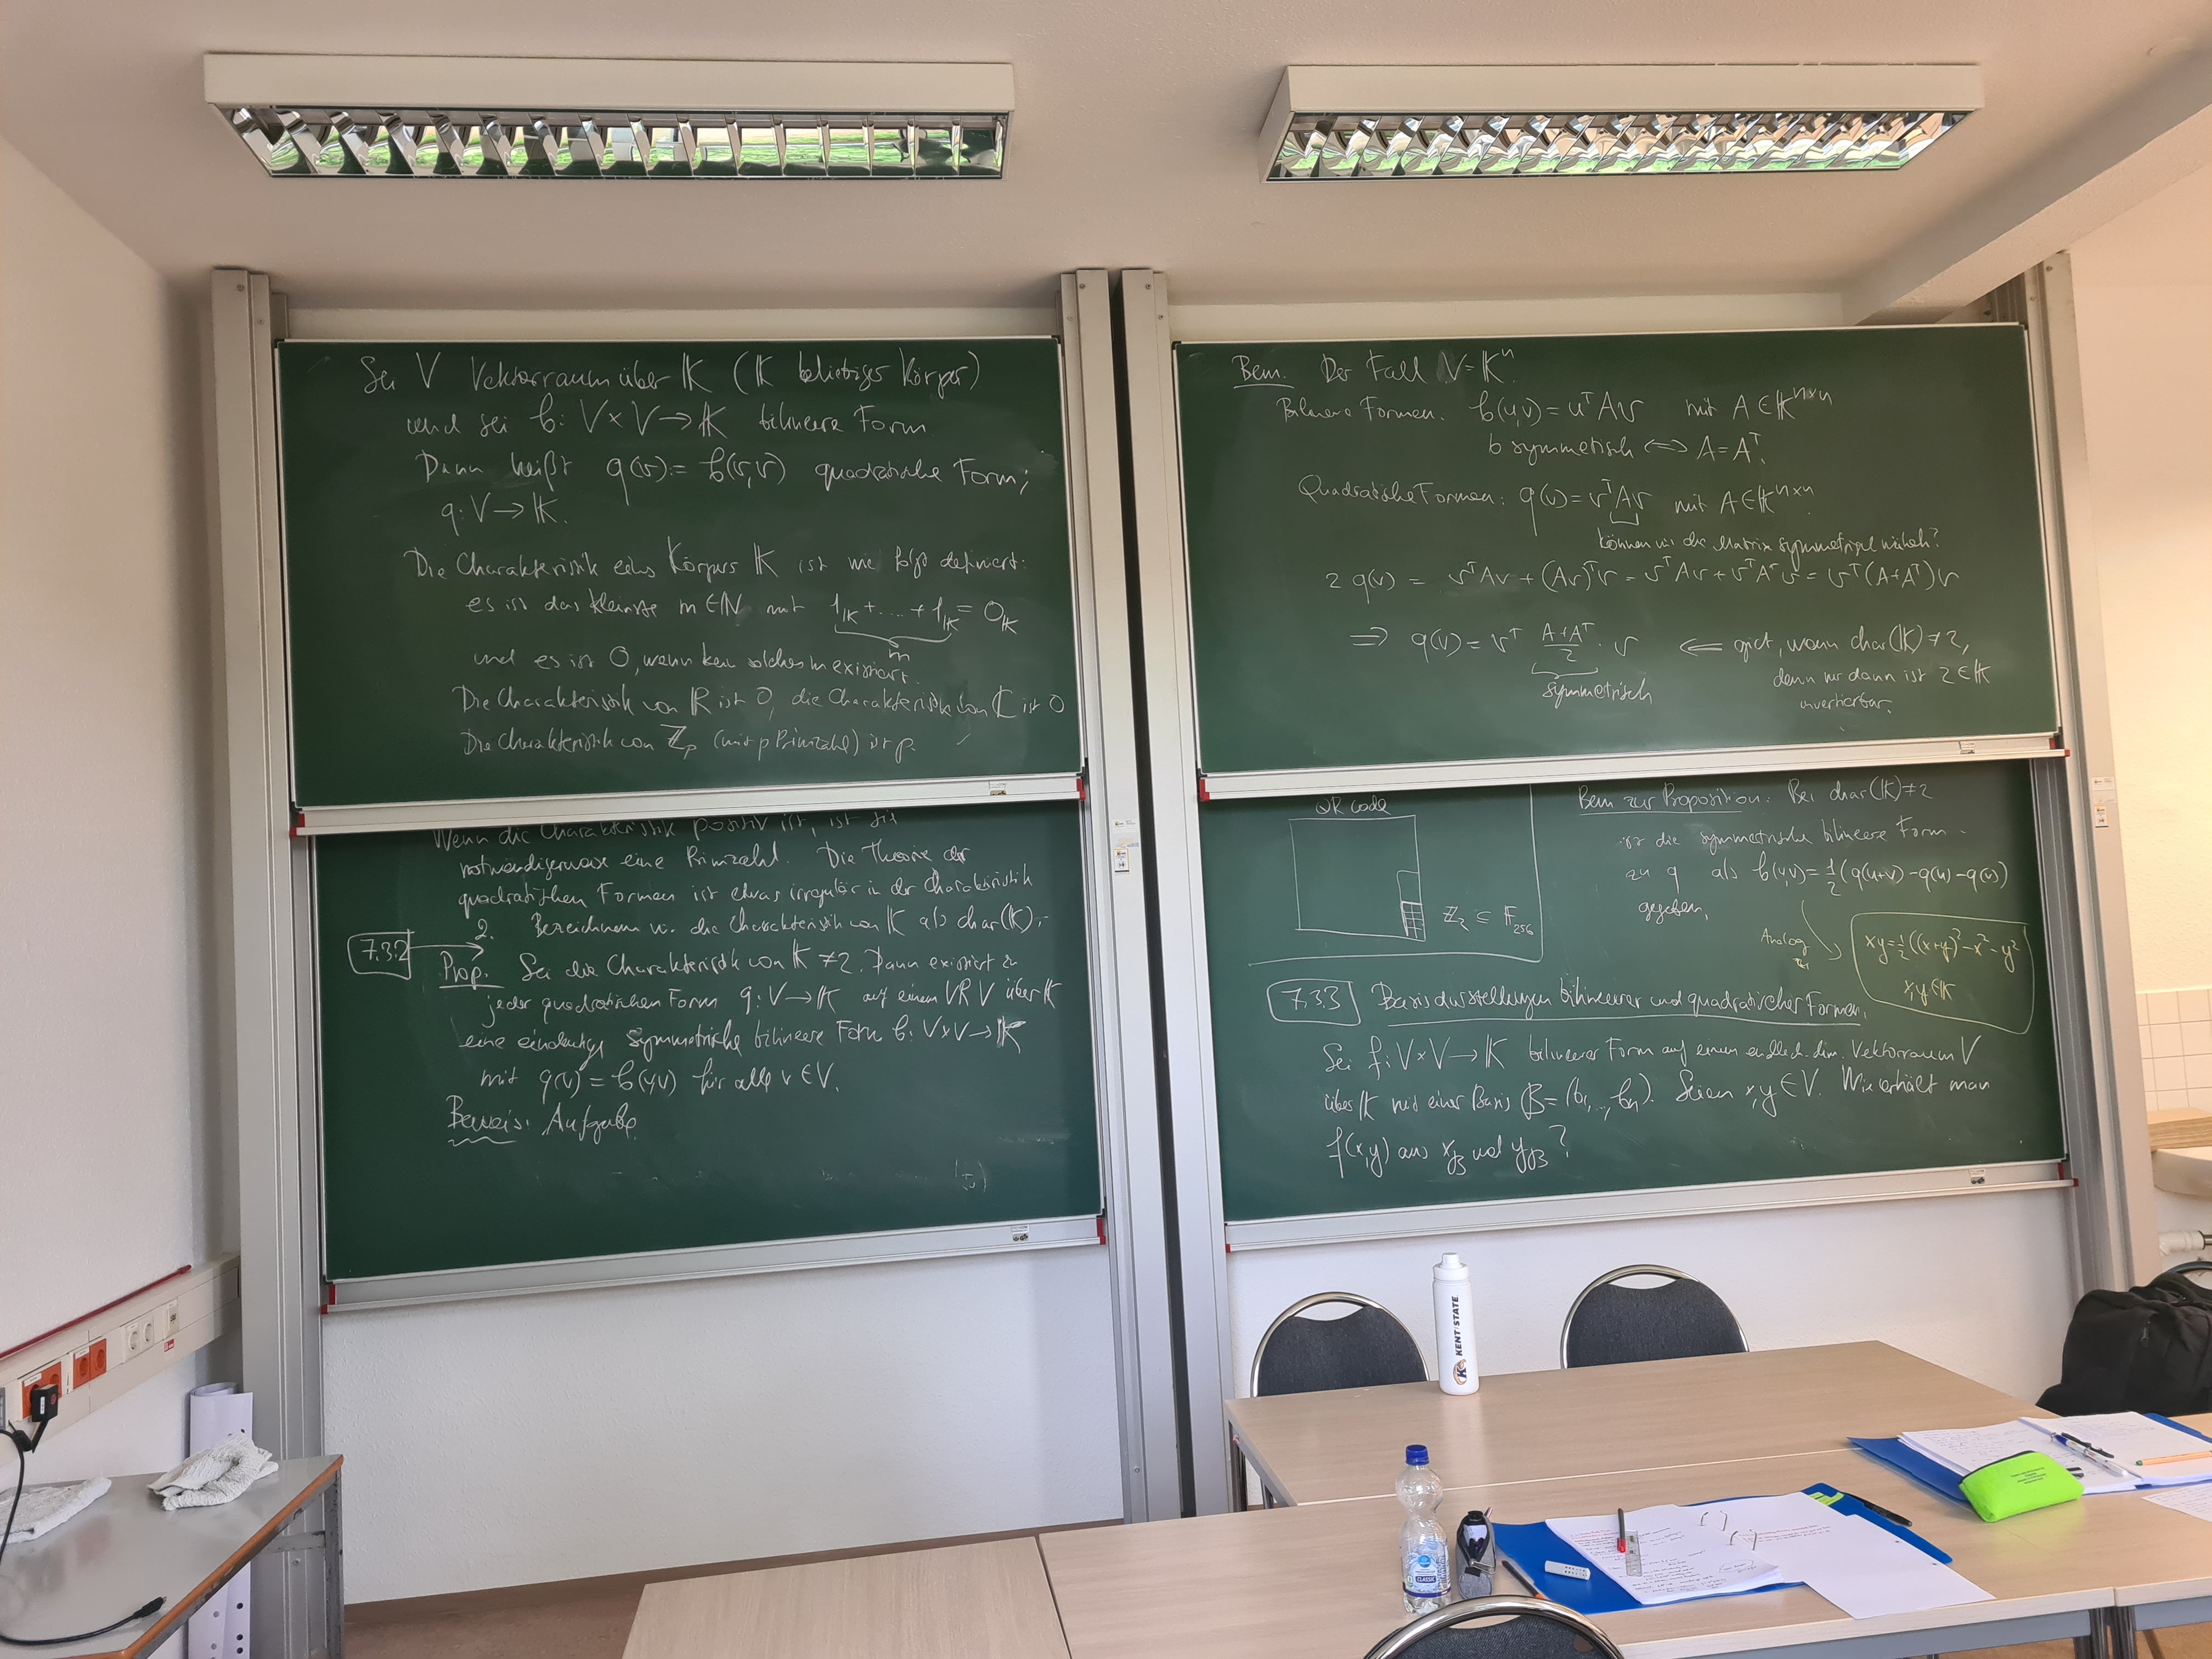 Sei V Vektorraum über 𝕂 (𝕂 beliebiger Körper)
und sei b: V × V → 𝕂 bilineare Form.
Dann heißt q(v) := b(v,v) quadratische Form;
q: V → 𝕂.
Die Charakteristik eines Körpers 𝕂 ist wie folgt definiert:
es ist das kleinste m ∈ ℕ mit 1_𝕂 + .... + 1_𝕂 = 0_𝕂
m
und es ist 0, wenn kein solches m existiert.
Die Charakteristik von ℝ ist 0, die Charakteristik von ℂ ist 0
Die Charakteristik von ℤ_p (mit p Primzahl) ist p.
Wenn die Charakteristik positiv ist, ist sie
notwendigerweise eine Primzahl. Die Theorie der
quadratischen Formen ist etwas irregulär in der Charakteristik
2. Bezeichnen wir die Charakteristik von 𝕂 als char(𝕂).
7.3.2
Prop. Sei die Charakteristik von 𝕂 ≠ 2. Dann existiert zu
jeder quadratischen Form q: V → 𝕂 auf einem VR V über 𝕂
eine eindeutige symmetrische bilineare Form b: V × V → 𝕂
mit q(v) = b(v,v) für alle v ∈ V.
Beweis: Aufgabe.
Bem. Der Fall V = 𝕂ⁿ.
Bilineare Formen: b(u,v) = uᵀAv mit A ∈ 𝕂ⁿˣⁿ
b symmetrisch ⟺ A = Aᵀ.
Quadratische Formen: q(v) = vᵀAv mit A ∈ 𝕂ⁿˣⁿ.
können wir die Matrix symmetrisch wählen?
2 q(v) = vᵀAv + (Av)ᵀv = vᵀAv + vᵀAᵀv = vᵀ(A+Aᵀ)v
⟹ q(v) = vᵀ (A+Aᵀ)/2 · v ⟸ gilt, wenn char(𝕂) ≠ 2,
symmetrisch
denn nur dann ist 2 ∈ 𝕂
invertierbar.
QR Code
ℤ₂ ⊆ 𝔽₂₅₆
Bem zur Proposition: Bei char(𝕂) ≠ 2
ist die symmetrische bilineare Form
zu q als b(u,v) = ½(q(u+v) - q(u) - q(v))
gegeben.
Analog zu
xy = ½((x+y)² - x² - y²
x,y ∈ 𝕂
7.3.3 Basisdarstellungen bilinearer und quadratischer Formen.
Sei f: V × V → 𝕂 bilinearer Form auf einem endlich-dim. Vektorraum V
über 𝕂 mit einer Basis B = (b₁,..., bₙ). Seien x,y ∈ V. Wie erhält man
f(x,y) aus x_B und y_B?
KENT STATE
CLASSIC